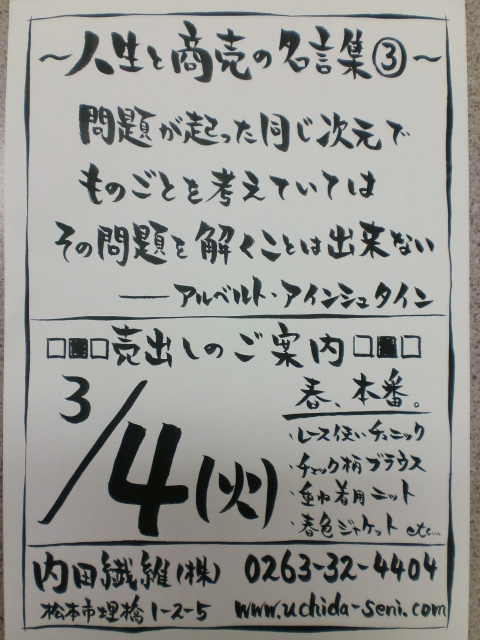 ～人生と商売の名言集③～
問題が起った同じ次元で
ものごとを考えていては
その問題を解くことは出来ない
──アルベルト・アインシュタイン
□■□売出しのご案内□■□
3/4(火)
春、本番。
・レース使いチュニック
・チェック柄ブラウス
・重ね着用ニット
・春色ジャケット etc...
内田繊維(株) 0263-32-4404
松本市埋橋1-2-5 www.uchida-seni.com